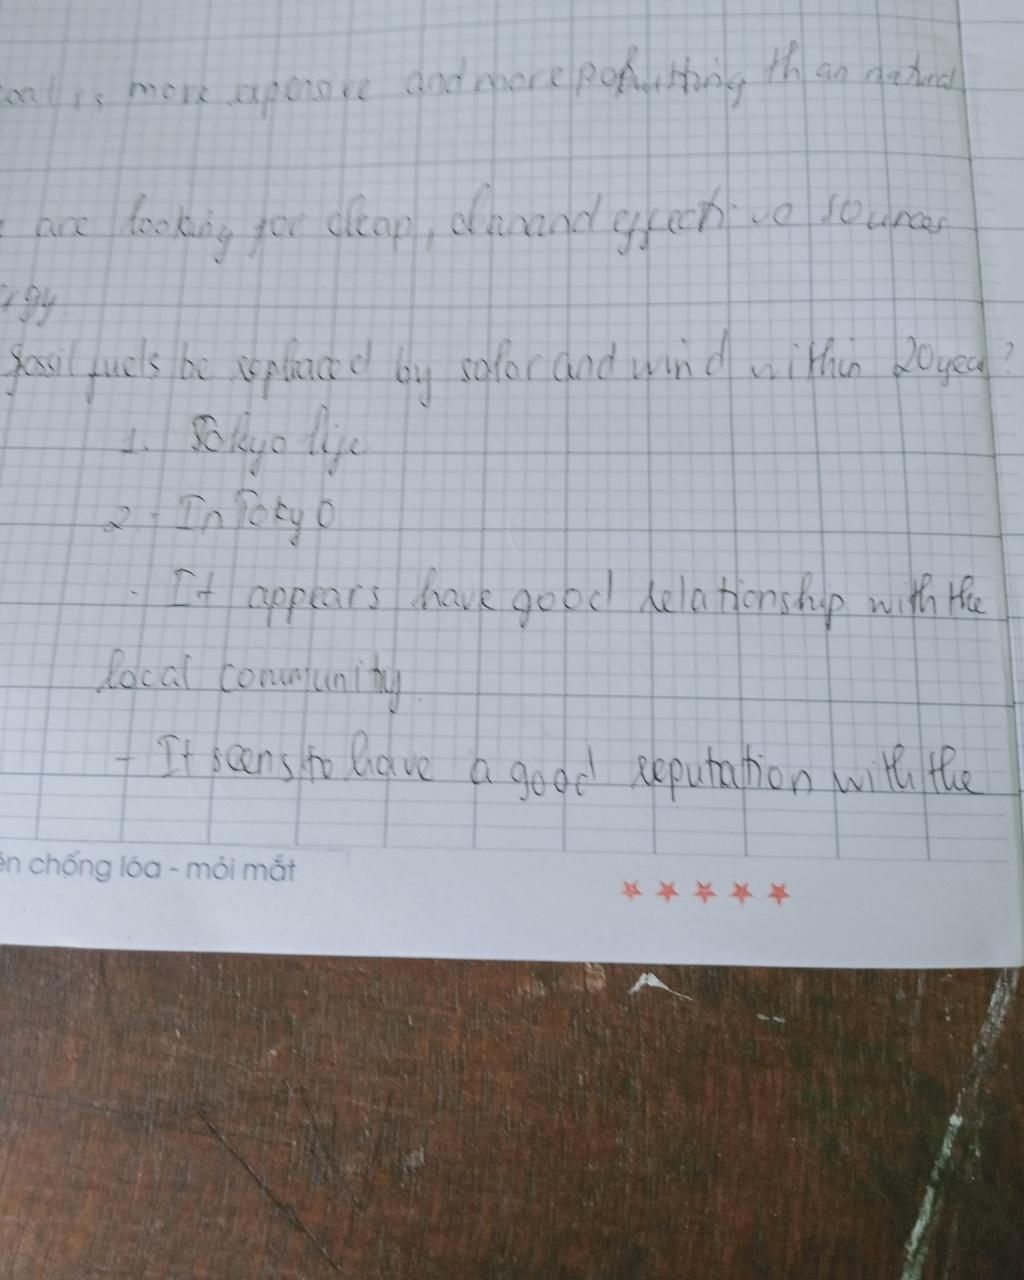 is more expensive and more pollutting than natural
are looking for cleap, and effective sources
rgy.
fossil fuels be replaced by solar and wind within 20 year?
1. Tokyo life
2. In Tokyo
- It appears have good relationship with the
local community.
- It seens to have a good reputation with the
ên chống lóa - mỏi mắt